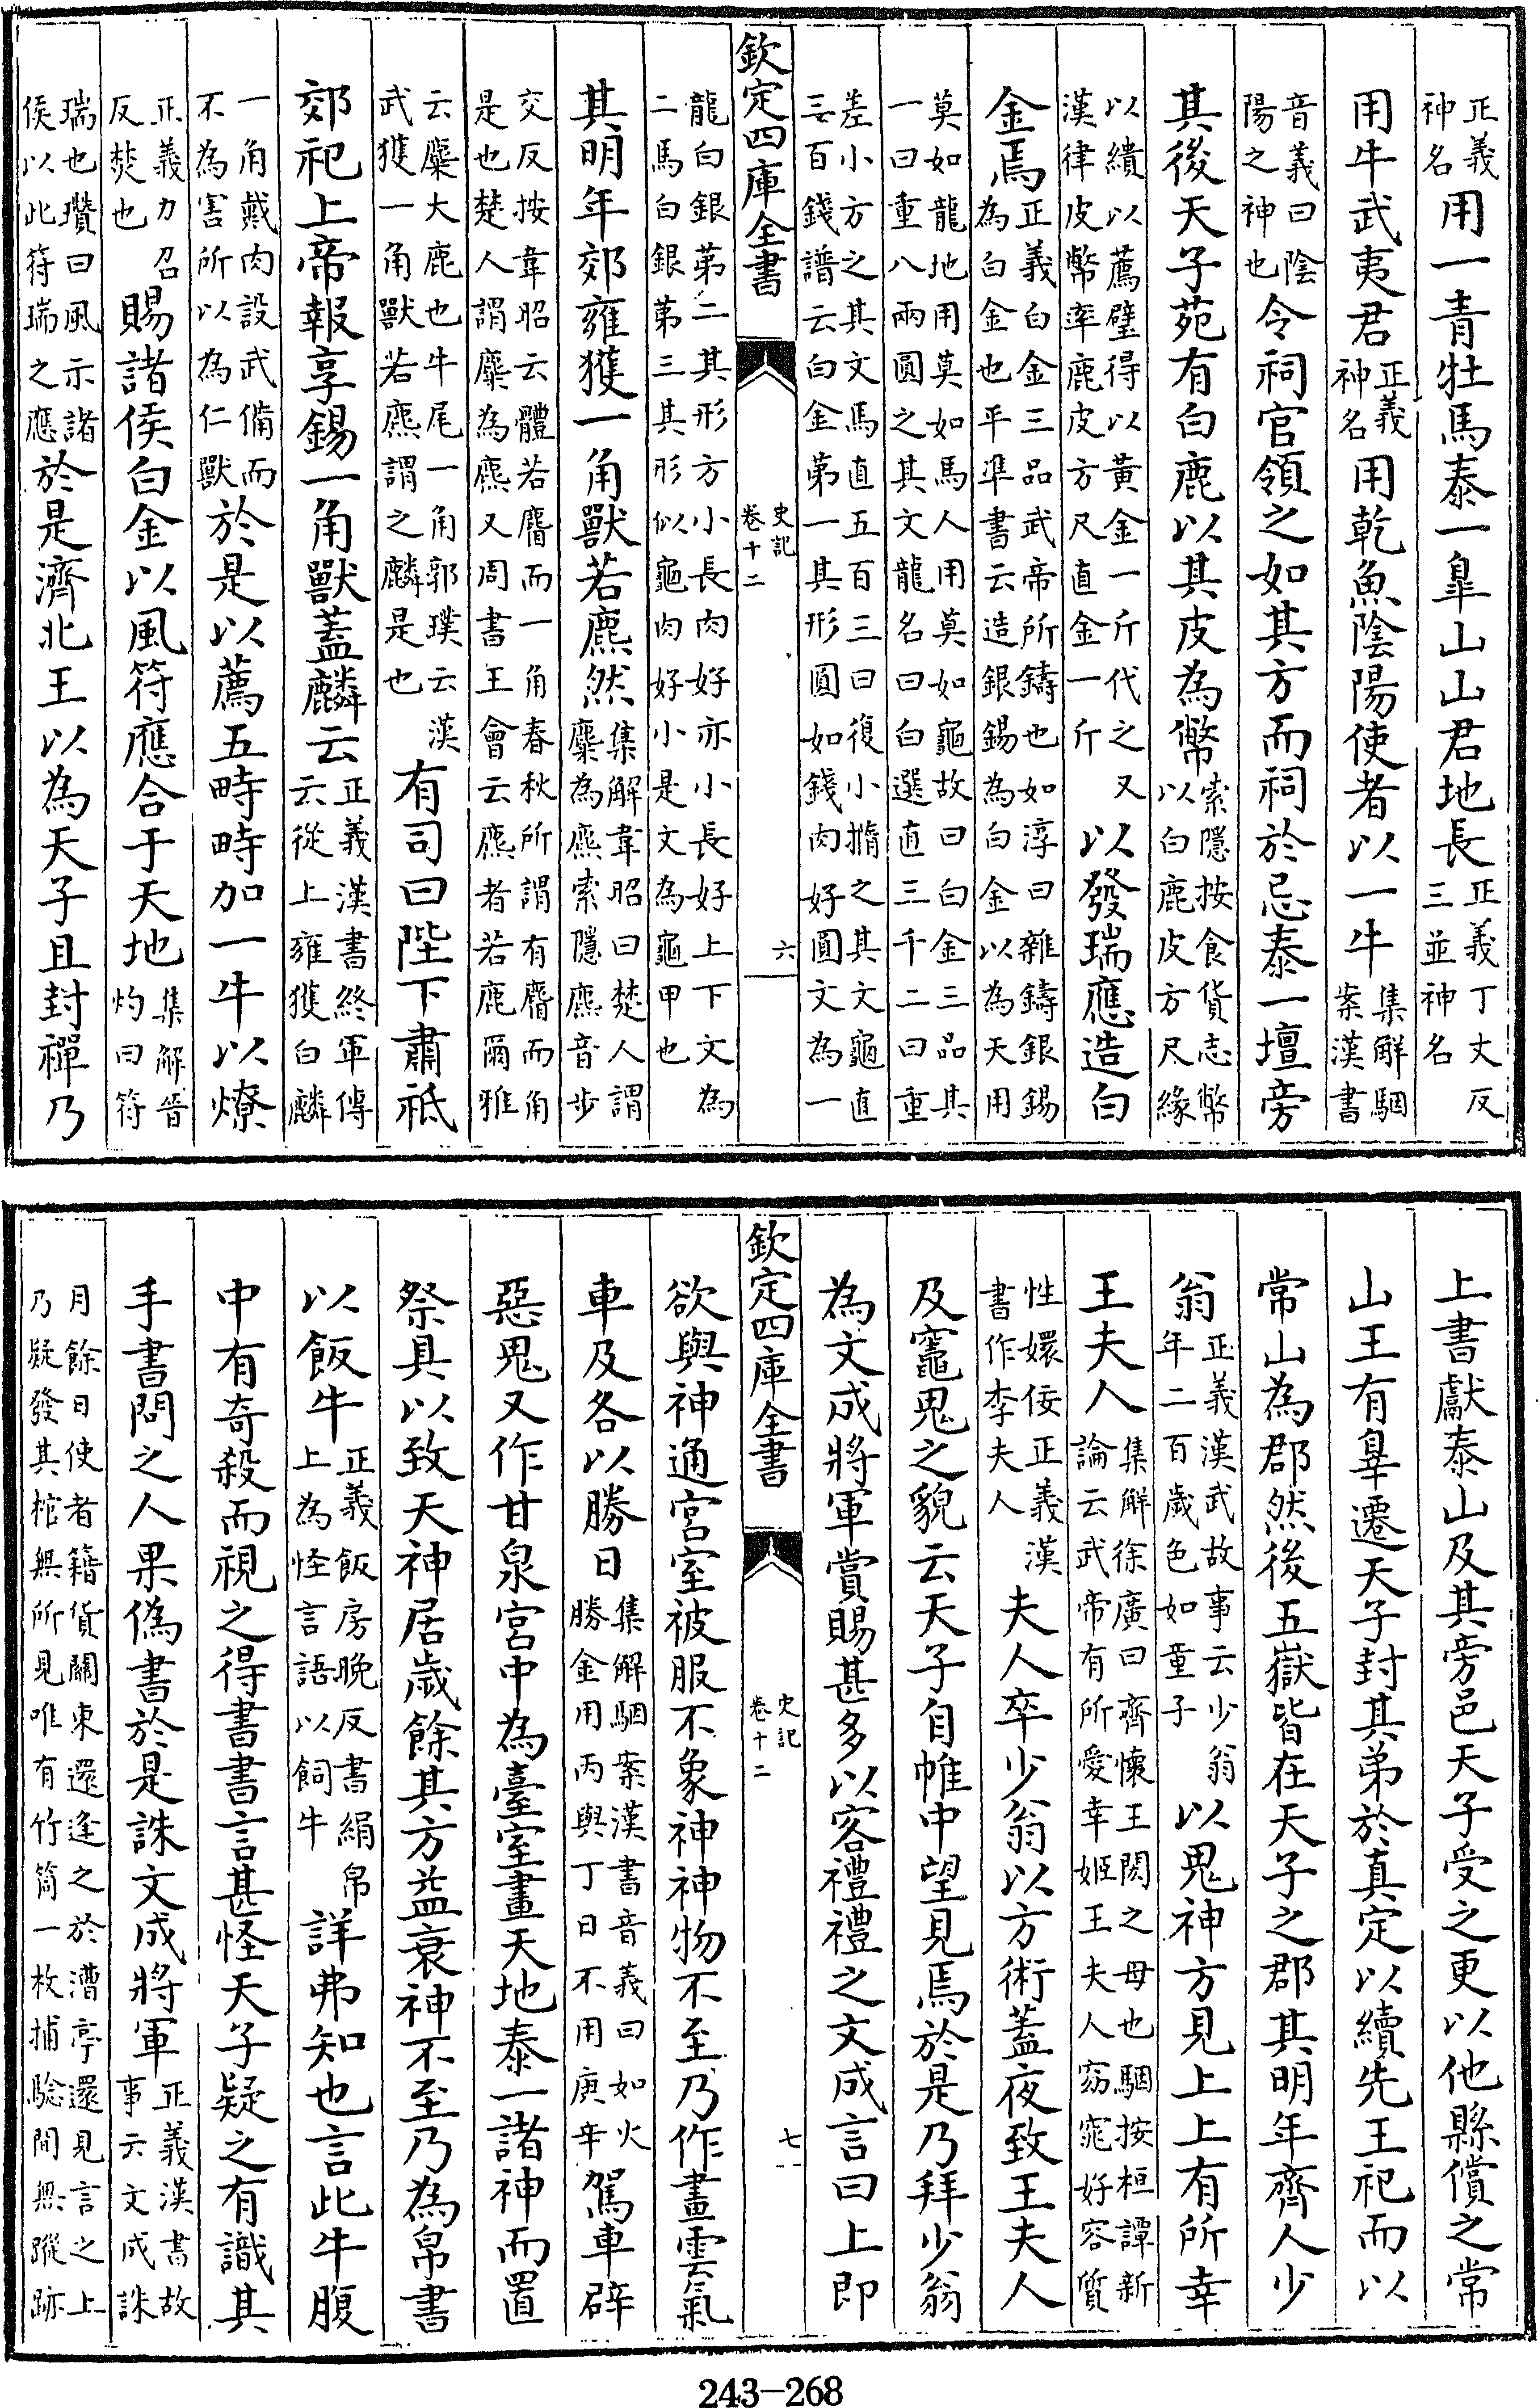 正義神名用一青牡馬泰一臯山山君地長正義丁丈反三並神名
用牛武夷君正義神名用乾魚陰陽使者以一牛集解駰案漢書
音義曰陰陽之神也令祠官領之如其方而祠於忌泰一壇旁
其後天子苑有白鹿以其皮為幣索隱按食貨志幣以白鹿皮方尺緣
以繢以薦璧得以黃金一斤代之又漢律皮幣率鹿皮方尺直金一斤以發瑞應造白
金焉正義白金三品武帝所鑄也如淳曰雜鑄銀錫為白金也平凖書云造銀錫為白金以為天用
莫如龍地用莫如馬人用莫如龜故曰白金三品其一曰重八兩圓之其文龍名曰白選直三千二曰重
差小方之其文馬直五百三曰復小撱之其文龜直三百錢譜云白金第一其形圓如錢肉好圓文為一
欽定四庫全書 史記卷十二 六
龍白銀第二其形方小長肉好亦小長好上下文為二馬白銀第三其形似龜肉好小是文為龜甲也
其明年郊雍獲一角獸若麃然集解韋昭曰楚人謂麋為麃索隱麃音步
交反按韋昭云體若麕而一角春秋所謂有麕而角是也楚人謂麋為麃又周書王會云麃者若鹿爾雅
云麋大鹿也牛尾一角郭璞云漢武獲一角獸若麃謂之麟是也有司曰陛下肅祗
郊祀上帝報享錫一角獸蓋麟云正義漢書終軍傳云從上雍獲白麟
一角戴肉設武備而不為害所以為仁獸於是以薦五畤畤加一牛以燎
正義力召反焚也賜諸侯白金以風符應合于天地集解晉灼曰符
瑞也瓚曰風示諸侯以此符瑞之應於是濟北王以為天子且封禪乃
上書獻泰山及其旁邑天子受之更以他縣償之常
山王有辠遷天子封其弟於真定以續先王祀而以
常山為郡然後五嶽皆在天子之郡其明年齊人少
翁正義漢武故事云少翁年二百歲色如童子以鬼神方見上上有所幸
王夫人集解徐廣曰齊懷王閎之母也駰按桓譚新論云武帝有所愛幸姬王夫人窈窕好容質
性嬛佞正義漢書作李夫人夫人卒少翁以方術蓋夜致王夫人
及竈鬼之貌云天子自帷中望見焉於是乃拜少翁
為文成將軍賞賜甚多以客禮禮之文成言曰上即
欽定四庫全書 史記卷十二 七
欲與神通宮室被服不象神神物不至乃作畫雲氣
車及各以勝日集解駰案漢書音義曰如火勝金用丙與丁日不用庚辛駕車辟
惡鬼又作甘泉宮中為臺室畫天地泰一諸神而置
祭具以致天神居歲餘其方益衰神不至乃為帛書
以飯牛正義飯房晚反書絹帛上為怪言語以飼牛詳弗知也言此牛腹
中有奇殺而視之得書書言甚怪天子疑之有識其
手書問之人果偽書於是誅文成將軍正義漢書故事云文成誅
月餘日使者籍貨關東還逢之於漕亭還見言之上乃疑發其棺無所見唯有竹筒一枚捕驗間無蹤跡
243-268